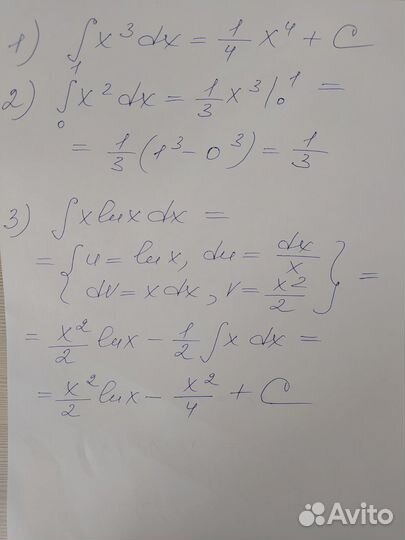 1) ∫x³dx = 1/4 x⁴ + C
2) ∫₀¹x²dx = 1/3 x³|₀¹ =
= 1/3 (1³ - 0³) = 1/3
3) ∫x ln x dx =
= { u = ln x, du = dx/x
dv = x dx, v = x²/2 } =
= x²/2 ln x - 1/2 ∫x dx =
= x²/2 ln x - x²/4 + C
Avito